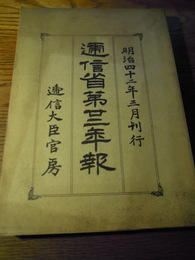 明治四十二年三月刊行
逓信省第廿年報
逓信大臣官房